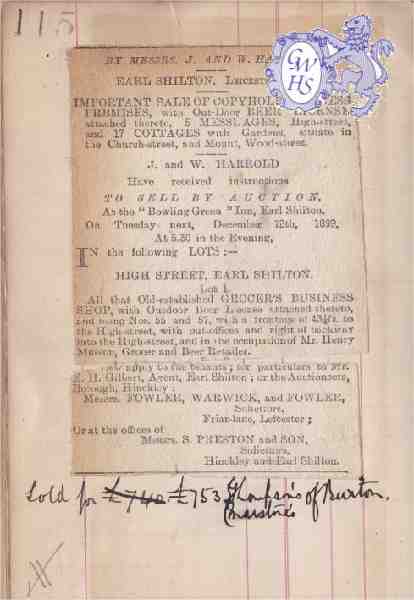 115
BY MESSRS. J. AND W. HA
EARL SHILTON, Leicest
IMPORTANT SALE of COPYHOLD
PREMISES, with Out-Door BEER LICENSE
attached thereto, 5 MESUAGES, High-street,
and 17 COTTAGES with Gardens, situate in
the Church-street, and Mount, Wood-street.
J. and W. HARROLD
Have received instructions
TO SELL BY AUCTION,
At the "Bowling Green" Inn, Earl Shilton,
On Tuesday next, December 12th, 1899,
At 5.30 in the Evening,
IN the following LOTS:—
HIGH STREET, EARL SHILTON.
Lot 1.
All that Old-established GROCER'S BUSINESS
SHOP, with Outdoor Beer License attached thereto,
and being Nos. 55 and 57, with a frontage of to
the High-street, with out-offices and right of backway
into the High-street, and in the occupation of Mr. Henry
Musson, Grocer and Beer Retailer.
apply to the tenants; for particulars to Mr.
E. H. Gilbert, Agent, Earl Shilton; or the Auctioneers,
Borough, Hinckley;
Messrs. FOWLER, WARWICK, and FOWLER,
Solicitors,
Friar-lane, Leicester;
Or at the offices of
Messrs. S. PRESTON and SON,
Solicitors,
Hinckley and Earl Shilton.
Sold for £740 £753 Thompsons of Burton.
Marstons
GWHS